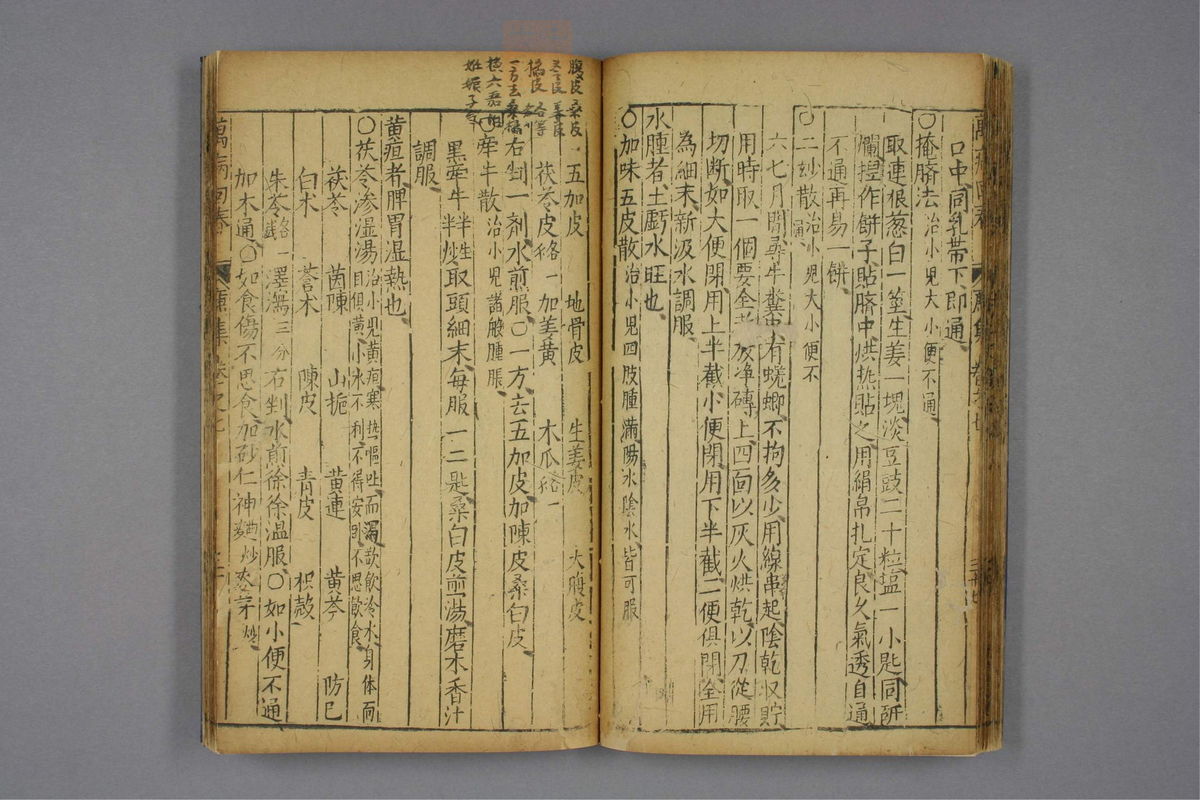 口中同乳帶下即通
○掩臍法治小兒大小便不通
取連根葱白一莖生姜一塊淡豆豉二十粒塩一小匙同研
爛捏作餅子貼臍中烘热貼之用絹帛扎定良久氣透自通
不通再易一餅
○二妙散治小兒大小便不通
六七月間尋牛糞中有蜣螂不拘多少用線串起陰乾収貯
用時取一個要全者放净磚上四靣以灰火烘乾以刀從腰
切斷如大便閉用上半截小便閉用下半截二便俱閉全用
為細末新汲水調服
水腫者土虧水旺也
○加味五皮散治小児四肢腫滿陽水陰水皆可服
五加皮 地骨皮 生姜皮 大腹皮
茯苓皮各一 加姜黄 木瓜各一
右剉一剤水煎服○一方去五加皮加陳皮桑白皮
○牽牛散治小児諸般腫脹
黑牽牛半生半炒取頭細末每服一二匙桑白皮煎湯磨木香汁
調服
黄疸者脾胃湿熱也
○茯苓渗湿湯治小児黄疸寒热嘔吐而渴欲飲冷水身体面目俱黄小水不利不得安卧不思飲食
茯苓 茵陳 山梔 黄連 黄芩 防巳
白术 蒼术 陳皮 青皮 枳殼
朱苓各一錢 澤瀉三分 右剉水煎徐徐温服○如小便不通
加木通○如食傷不思食加砂仁神曲炒麥芽炒
萬病回春 康集 卷之七
腹皮 桑皮